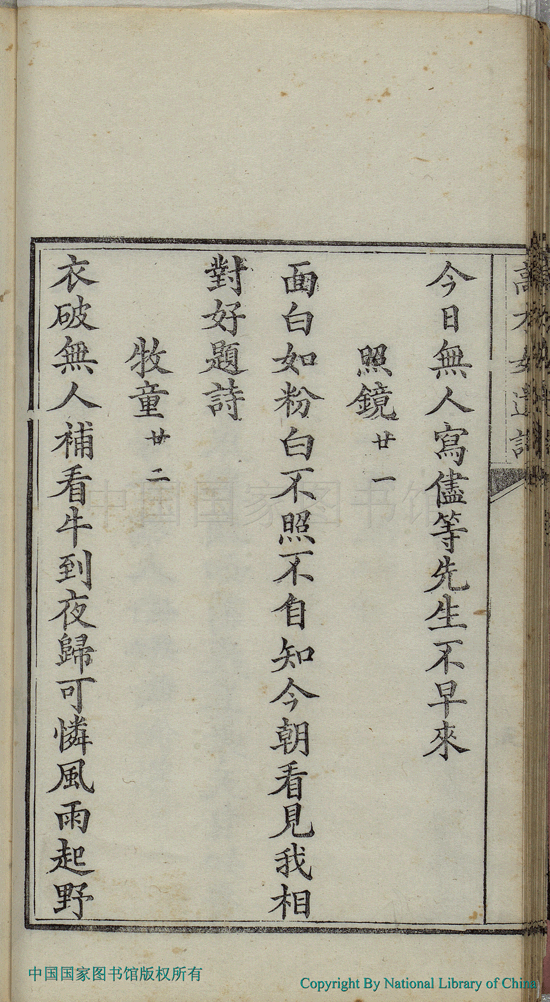 今日無人寫儘等先生不早來
照鏡 廿一
面白如粉白不照不自知今朝看見我相
對好題詩
牧童 廿二
衣破無人補看牛到夜歸可憐風雨起野
中国国家图书馆
中国国家图书馆版权所有
Copyright By National Library of China